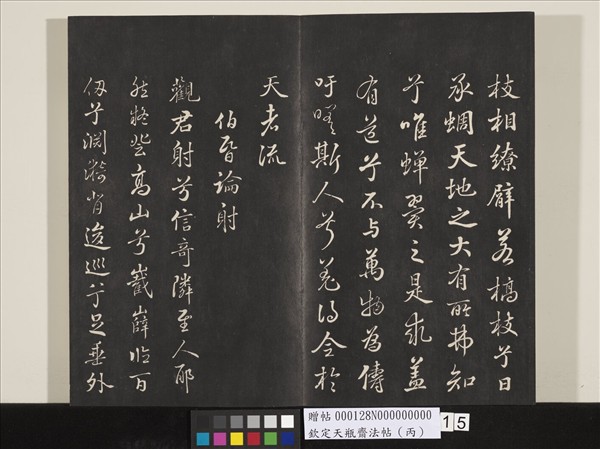 枝相繚臂若槁枝兮日
承蜩天地之大有所弗知
兮唯蟬翼之是求蓋
有道兮不与萬物為儔
吁嗟斯人兮羌得全於
天者流
伯昏論射
觀君射兮信奇隣至人耶
然將登高山兮巀嶭臨百
仞兮淵背逡巡兮足垂外
贈帖 000128N000000000
欽定天瓶齋法帖（丙）
15